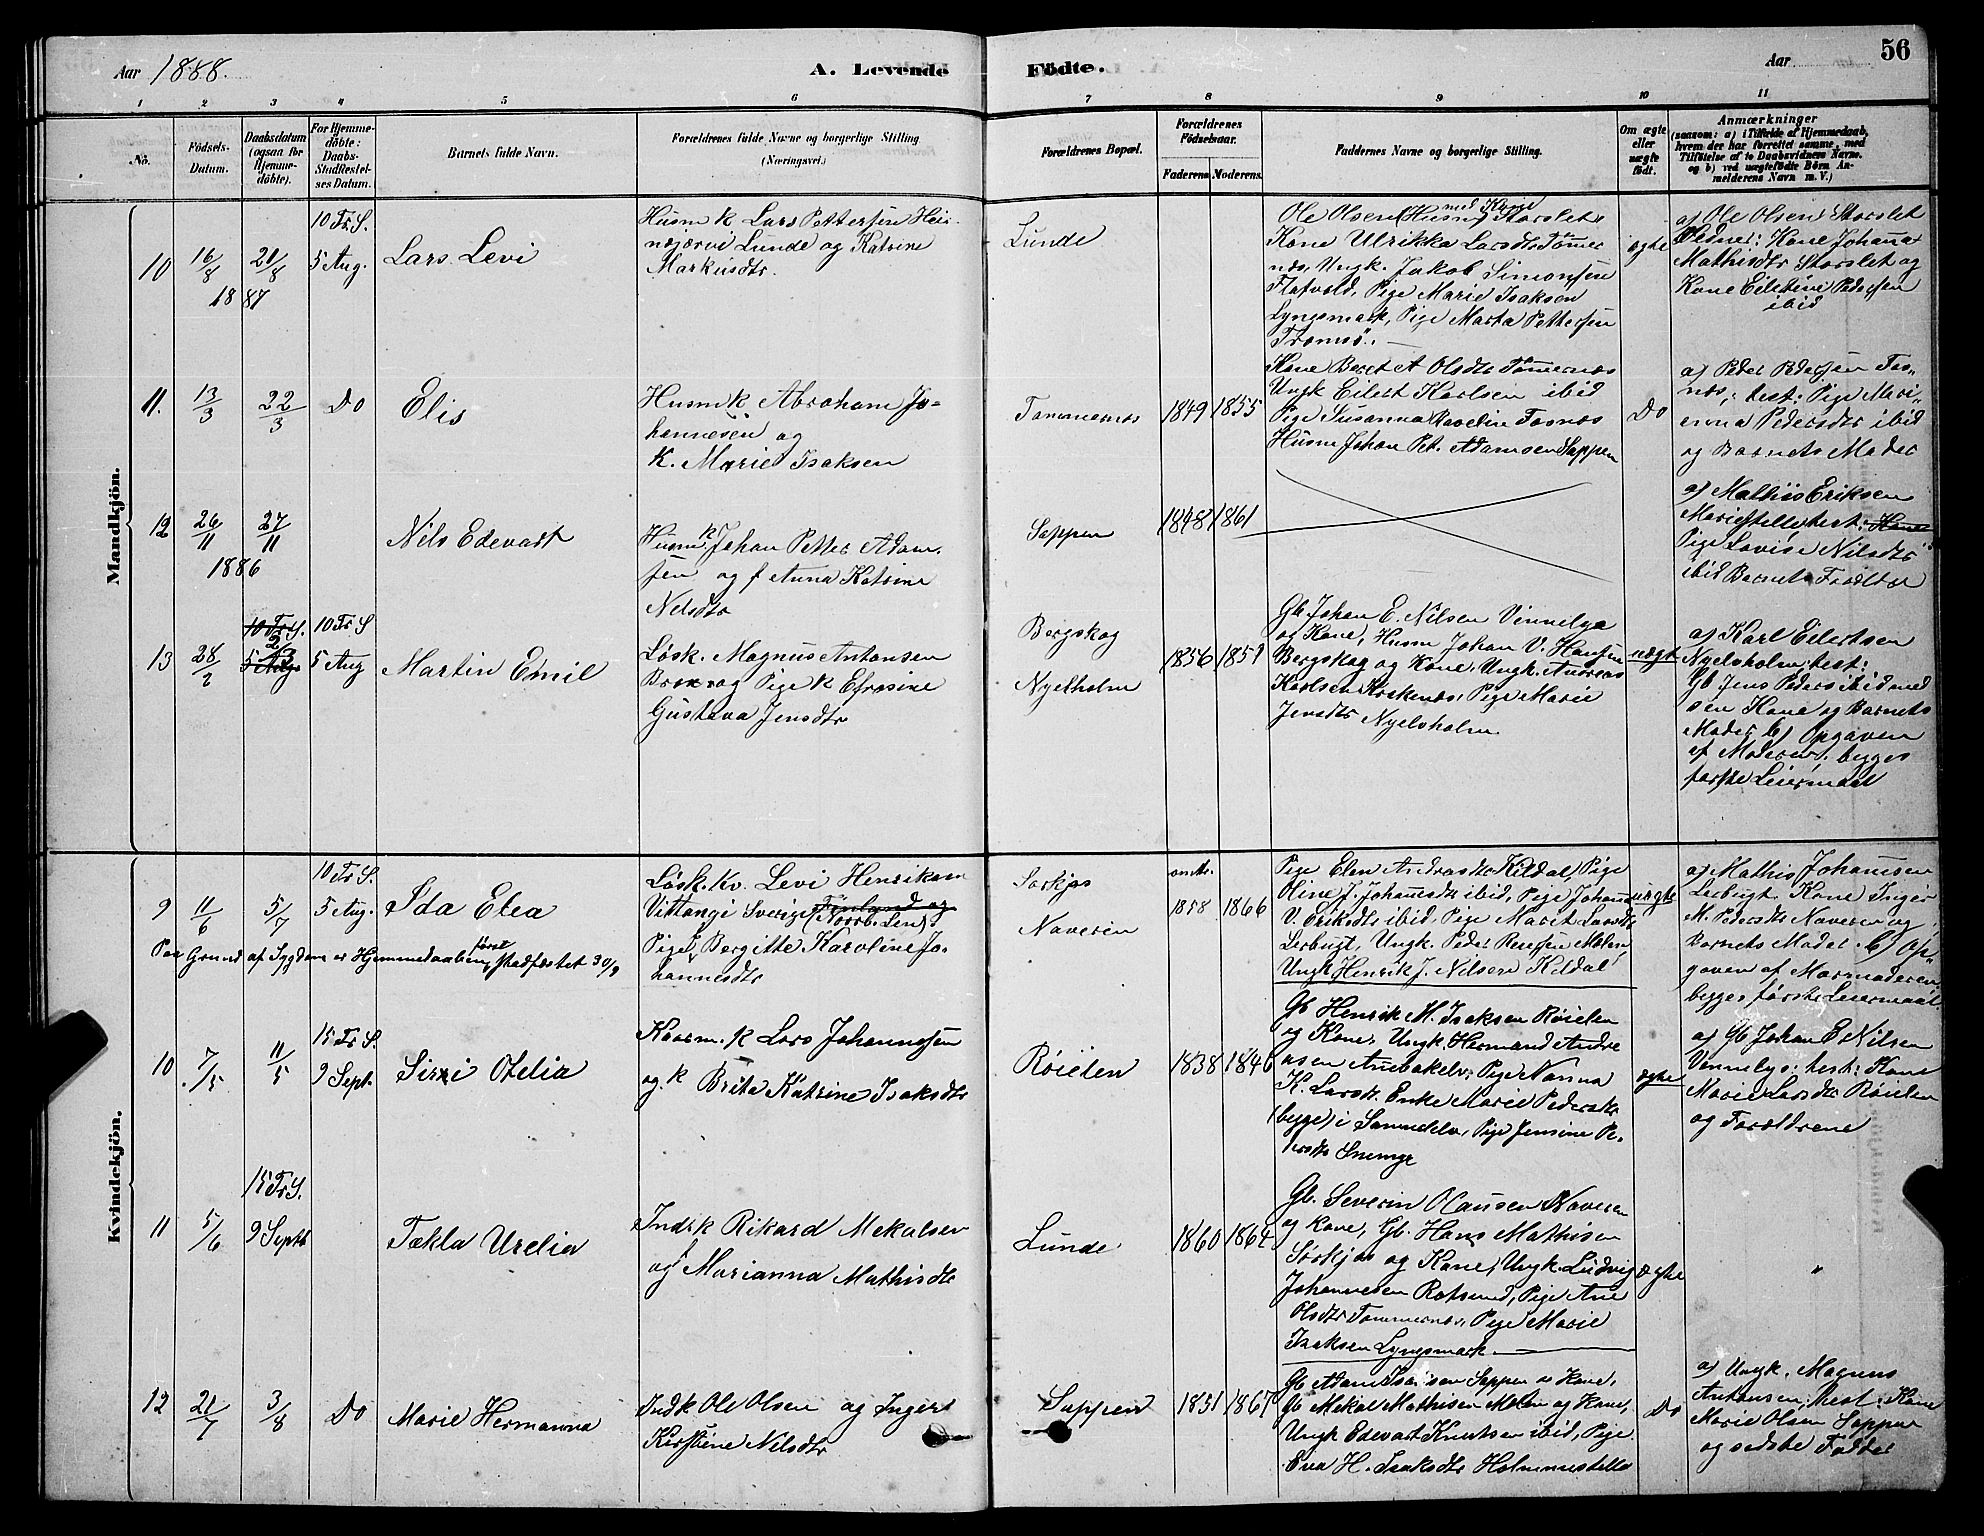 Aar 1888.
A. Levende Födte.
Aar
56
1 2 3 4 5 6 7 8 9 10 11
No.
Födsels-Datum.
Daabsdatum (ogsaa for Hjemmedöbte).
For Hjemmedöbte: Daabs-Stadfæstelses Datum.
Barnets fulde Navn.
Forældrenes fulde Navne og borgerlige Stilling (Næringsvei.)
Forældrenes Bopæl.
Forældrenes Födselsaar.
Faderens. Moderens.
Faddernes Navne og borgerlige Stilling.
Om ægte eller uægte födt.
Anmærkninger
(saasom: a) i Tilfælde af Hjemmedaab,
hvem der har forrettet samme, med
Tilföielse af to Daabsvidners Navne.
og b) ved uægtefödte Börn An-
melderens Navn m. V.)
Mandkjön.
10
16/8 1887
21/8
10 Tr. S.
5 Aug.
Lars Levi
Husm k Lars Pettersen
Lunde og Katrine
Markusdtr.
Lunde
Ole Olsen (Husm med Kone) Storslet,
Kone Ulrikka Larsdtr Tömer
nes, Ungk. Jakob Simonsen
Flatvold, Pige Marie Isaksen
Lyngsmark, Pige Marta Pettersen
Tromsö.
ægte
af Ole Olsen Storslet
Kone Johanna
Mathisdtr Storslet og
Kone Eilertine Pedersen
ibid
11.
13/3
22/3
Do
Elis
Husm k Abraham Jo-
hannesen og
K. Marie Isaksen
Tømmernes
1849 1855
Kone Beret A Olsdtr Tömernes
Ungk Eilert Karlsen ibid
Pige Susanna Tosnes
Husm Johan Pet. Adamsen Sappen
Do
af Peder Pedersen Tos-
nes, test: Pige Mari-
enna Pedersdtr ibid
og Barnets Moder
12
26/11 1886
27/11
Nils Edevart
Husm k Johan Petter Adam-
sen og f Anna Katrine
Nilsdtr
Sappen
1848 1861
af Mathiis Eriksen
test: Kone
Pige Lovise Nilsdtr
ibid Barnets Foreldre
13
28/2
10 Tr S.
5 Aug
10 Tr S
5 Aug
Martin Emil
Løsk. Magnus Antonsen
og Pige k Efrosine
Gustava Jensdtr
Bergskog
Nyelvholm
1856 1859
Gb Johan E. Nilsen Vinnelys
og Kone, Husm Johan V. Hansen
Bergskog og Kone, Ungk. Andreas
Karlsen Kroknes, Pige Marie
Jensdtr Nyelvholm
uægte
af Karl Eilertsen
Nyelvholm, test:
Gb Jens Peders ibid med
sen Kone og Barnets
Moder b) Opgaven
af Moderen, begges
første Leiermaal
Kvindekjön.
9
11/6
5/7
10 Tr S.
5 Aug.
Ida Elea
Løsk. Kv. Levi Henriksen
Vittangi Sverige (Norrb. Len)
Finland og
Pige k Bergitte Karoline Jo-
hannesdtr
Paa Grund af Sygdom er Hjemmedaaben först stadfæstet 30/9
Sørkjos
Naveren
omtr.
1858 1866
Pige Elen Andrasdtr Kildal, Pige
Oline J. Johansdtr ibid, Pige Johanna
V. Eriksdtr ibid, Pige Marit Larsdtr
Lerbugt, Ungk. Peder Molen,
Ungk Henrik J. Nilsen Kildal
uægte
af Mathis Johansen
Lerbugt Kone Inger
M. Pedersdtr Naveren og
Barnets Moder b) Op-
gaven af Mormoderen,
begges første Leiermaal
10
7/5
11/5
15 Tr S.
9 Sept.
Sirzi Otelia
k Lars Johannesen
og k Brita Katrine Isaksdtr
Røielen
1838 1846
Gb Henrik M. Isaksen Røielen
og Kone, Ungk. Hermand Andre
asen Anebakelv, Pige Nanna
K. Larsdtr. Enke Marie Pedersdtr
(begge) i Sammelelv, Pige Jensine Pe-
dersdtr
ægte
af Gb Johan E Nilsen
Vinnelys: test: Kone
Marie Larsdtr Røielen
og Forældrene
11
5/6
15 Tr S.
9 Septb
Tækla Urelia
Indr k Rikard Mekalsen
og f Marianna Mathisdtr
Lunde
1860 1864
Gb. Severin Olausen Naveren
og Kone, Gb. Hans Mathisen
Sørkjos og Kone, Ungk. Ludvig
Johannesen Rotsund, Pige Ane
Olsdtr Tømmernes, Pige Marie
Isaksen Lyngsmark
ægte
"
12
21/7
3/8
Do
Marie Hermanna
Indk Ole Olsen og Ingert
Kirstine Nilsdtr
Sappen
1851 1867
Gb Adam Isaksen Sappen og Kone,
Gb Mekal Mathisen Molen og Kone,
Ungk Edevart Knutsen ibid, Pige
Eva H. Isaksdtr
Do
af Ungk. Magnus
Antonsen, test: Kone
Marie Olsen Sappen
og sidste Fadder